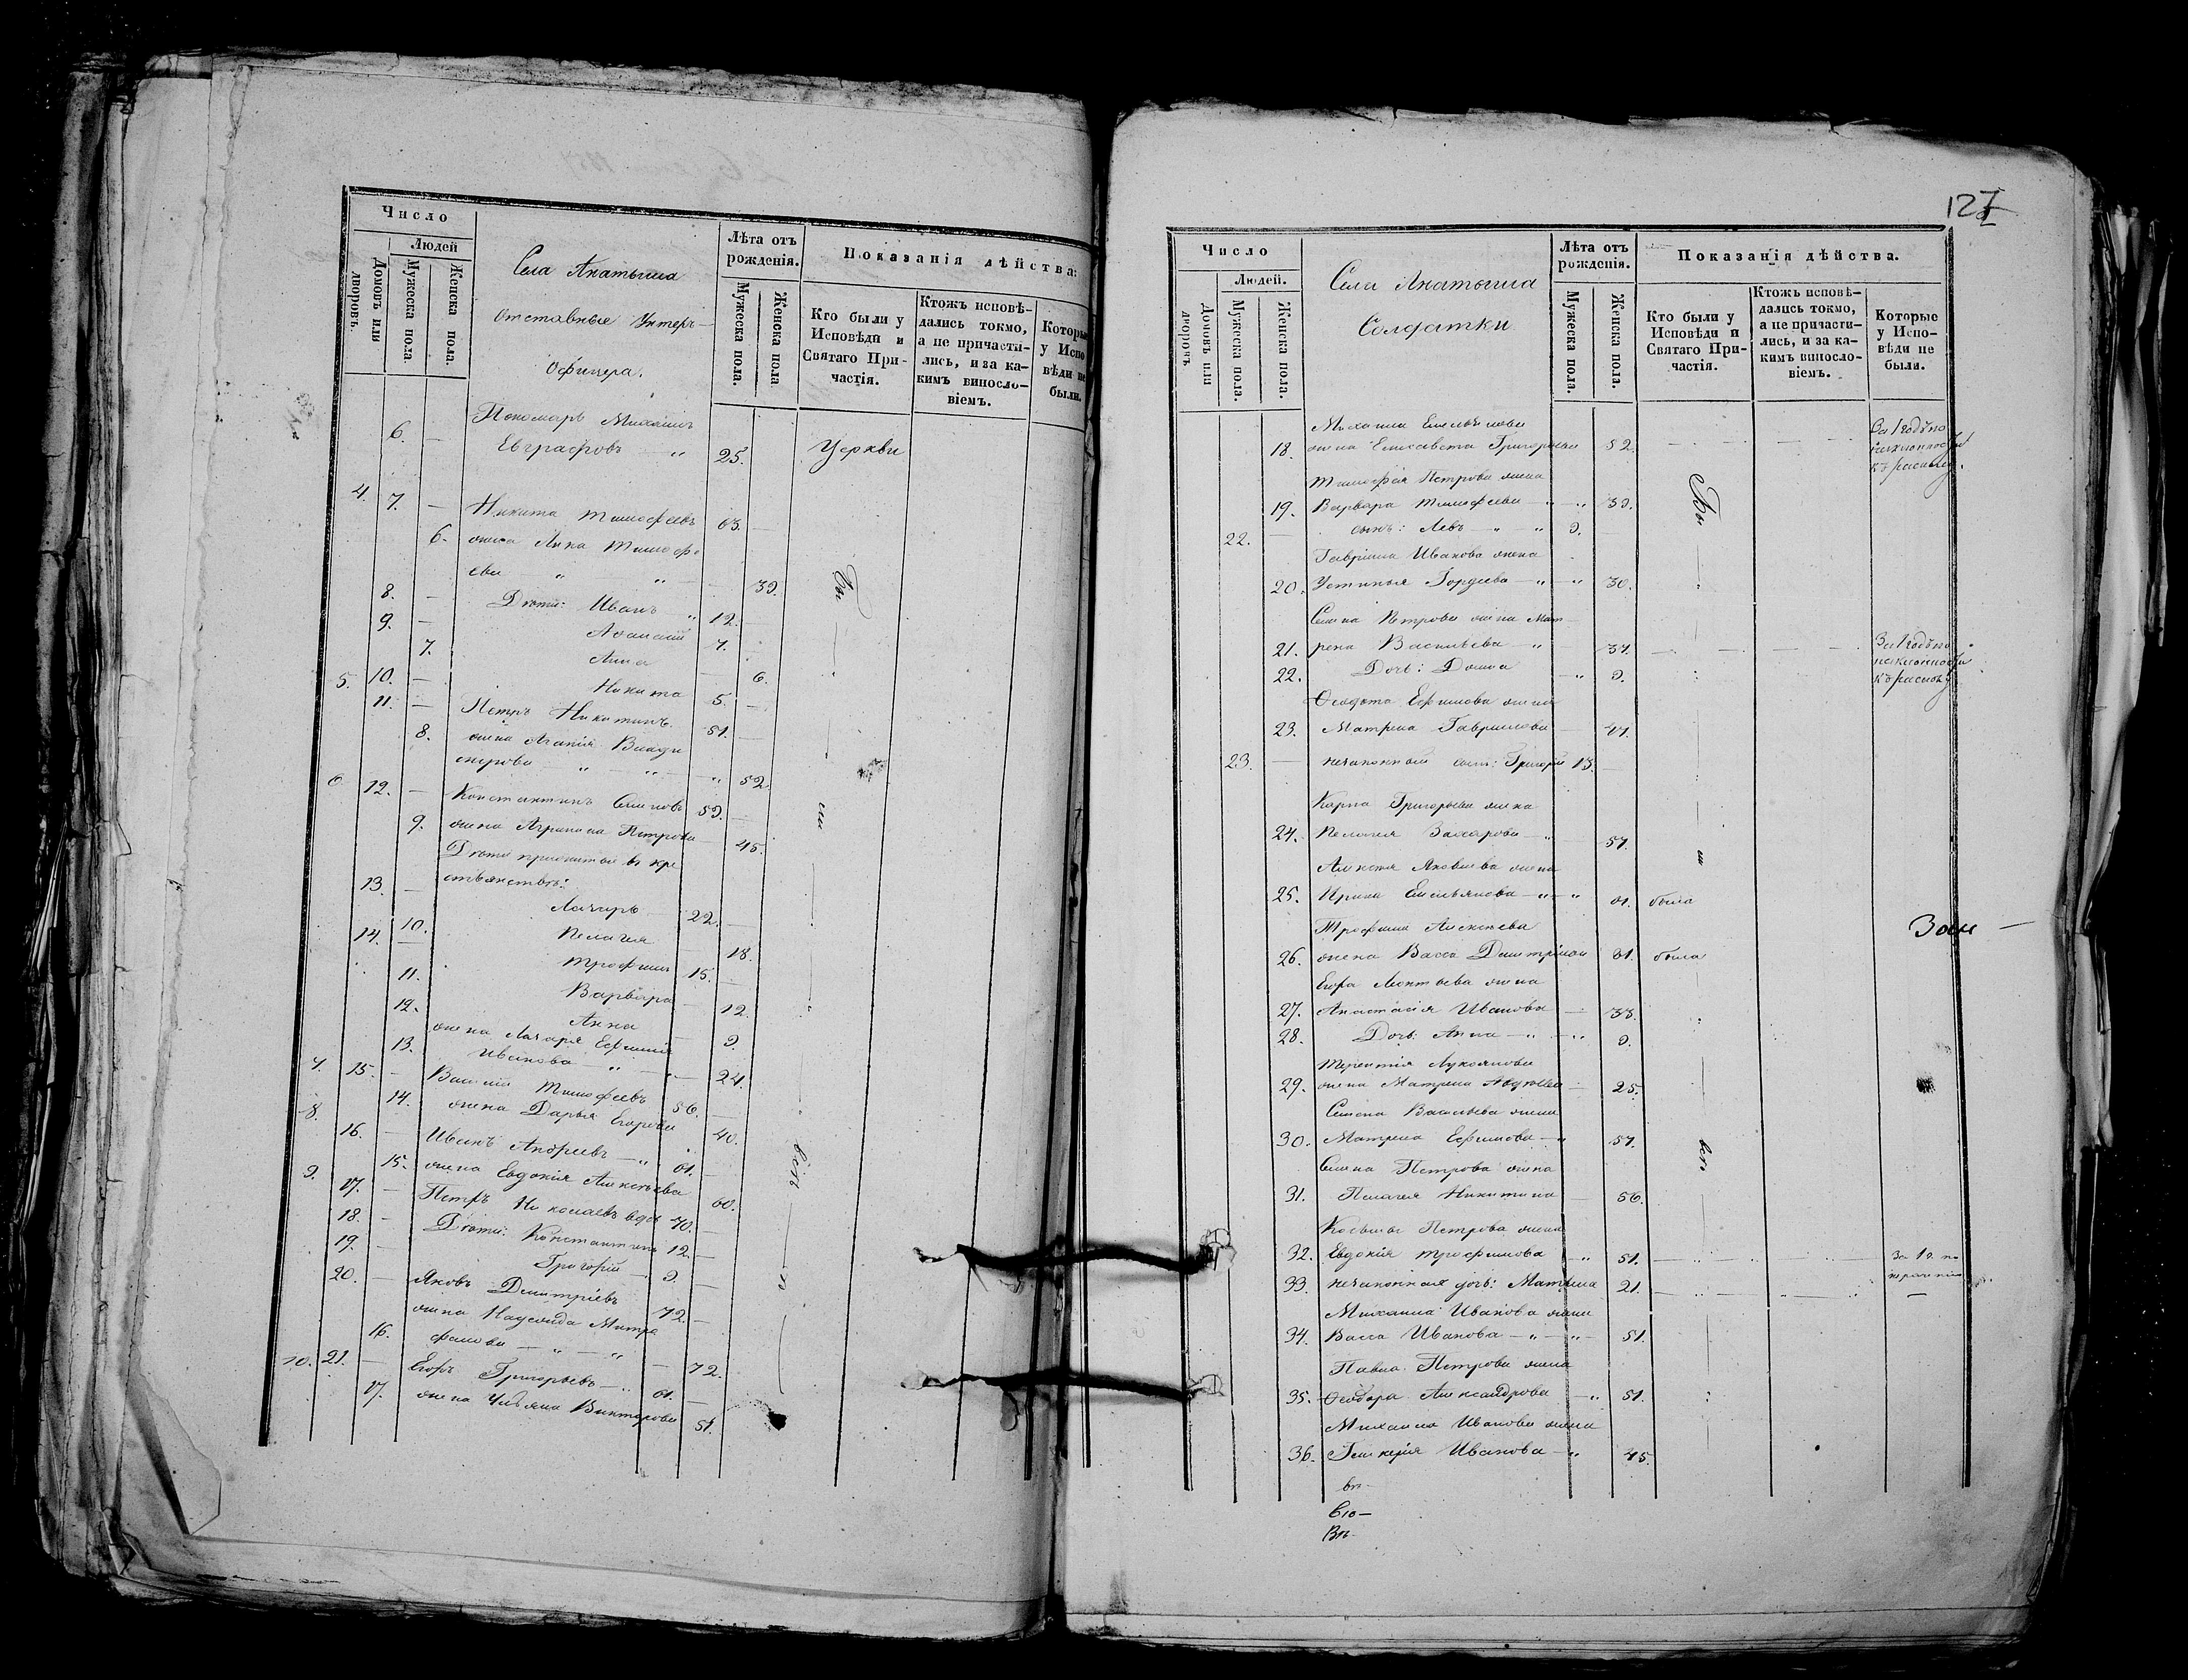 Число
Людей
Домовъ или дворовъ.
Мужеска пола
Женска пола.
Села Анатыша
Отставные Унтеръ-
Офицера.
Лѣта отъ рожденія.
Мужеска пола.
Женска пола
Показанія дѣйства:
Кто были у Исповѣди и Святаго Причастія.
Ктожъ исповѣдались токмо, а не причастились, и за какимъ винословіемъ.
Которые у Исповѣди не были.
6. — Пономарь Михаилъ
Евграфовъ „ 25. Церкви
4. 7. — Никита Тимофеевъ 63. —
6. жена Анна Тимофе
ева „ „ — 39. Бы
8. — Дѣти: Иванъ „ 12. —
9. — Афанасій 7.
7. Анна — 6.
5. 10. — Никита 5. —
11. — Петръ Никитинъ. 51. —
8. жена Агафія
„ „ 52.
6 12. — Константинъ Семеновъ 59. —
ли
9. жена Агрипина Петрова 45.
Дѣти
13. — Лазарь 22. —
10. Пелагея — 18.
14. — Трофимъ 15. —
11. Варвара — 12.
12. Анна — 9.
13. жена Лазаря Ефимія
Иванова „ — 24.
7. 15. — Василій Тимофеевъ 56. —
14. жена Дарья Егорова 40.
8. 16. — Иванъ Андреевъ — „ 61. — всѣ
15. жена Евдокия Алексѣева 60.
9. 17. — Петръ Николаевъ вдов 70. —
18. — Дѣти: Константинъ 12. —
19. — Григорій — 9. —
20. — Яковъ Дмитріевъ 72. —
16. жена Митро
фанова — „ — „ — 72.
10. 21. — Егоръ Григорьевъ — „ 61. —
17. жена Ульяна Викторова 51.
127
Число
Людей.
Домовъ или дворовъ
Мужеска пола.
Женска пола.
Села Анатыша
Солдатки
Лѣта отъ рожденія.
Мужеска пола.
Женска пола.
Показанія дѣйства.
Кто были у Исповѣди и Святаго Причастія.
Ктожъ исповѣдались токмо, а не причастились, и за какимъ винословіемъ.
Которые у Исповѣди не были.
Михаила Емельянова
18. жена Елисавета Григорьева 52. За 1 годъ по
наклонности
къ расколу.
Тимофея Петрова жена
19. Варвара Тимофеева — „ — „ 39. Бы
22. — сынъ: Левъ — „ — „ 9. —
Гавріила Иванова жена
20. Устинья Гордеева — „ — „ 30.
Семена Петрова жена Мат-
21. рена Васильева — „ — 37. За 1 годъ по
22. Дочь: Домна — „ 9. наклонности
къ расколу
Феодота Ефимова жена
23. Матрена Гаврилова — 47.
23. — незаконный сынъ: Григорій 13. —
Карпа Григорьева жена
24. Пелагея Захарова — „ — 57. ли
Алексея Яковлева жена
25. Ирина Емельянова — „ — „ 61. была
Трофима Алексеева
26. жена Васса Дмитріева 81. была
Егора Леонтьева жена
27. Анастасія Иванова — 33.
28. Дочь: Анна — „ — „ 9.
Терентія Лукоянова
29. жена Матрена 25.
Семена Васильева жена
30. Матрена Ефимова — „ 57. всѣ
Семена Петрова жена
31. Пелагея Никитина — 56.
Косьмы Петрова жена
32. Евдокія Трофимова — „ 51. За 1 г. по
33. незаконная дочь: Матрена 21.
Михаила Иванова жена
34. Васса Иванова — „ — „ 51.
Павла Петрова жена
35. Феодора Александрова — „ 51.
Михаила Иванова жена
36. Гликерія Иванова — „ 45.